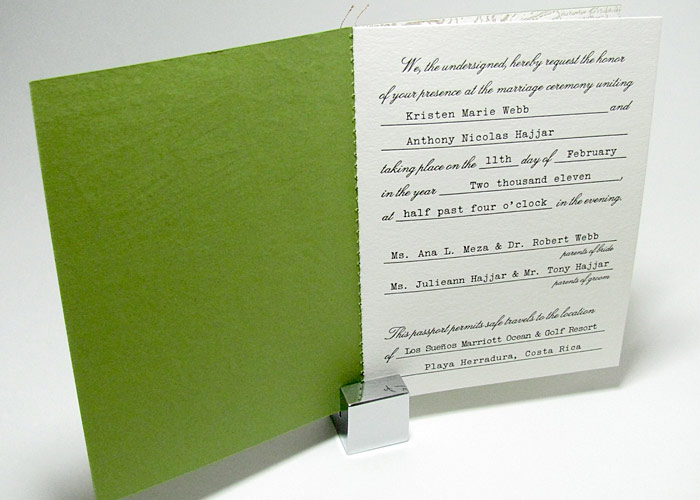 We, the undersigned, hereby request the honor
of your presence at the marriage ceremony uniting
Kristen Marie Webb and
Anthony Nicolas Hajjar
taking place on the 11th day of February
in the year Two thousand eleven,
at half past four o'clock in the evening.
Ms. Ana L. Meza & Dr. Robert Webb
parents of bride
Ms. Julieann Hajjar & Mr. Tony Hajjar
parents of groom
This passport permits safe travels to the location
of Los Sueños Marriott Ocean & Golf Resort
Playa Herradura, Costa Rica